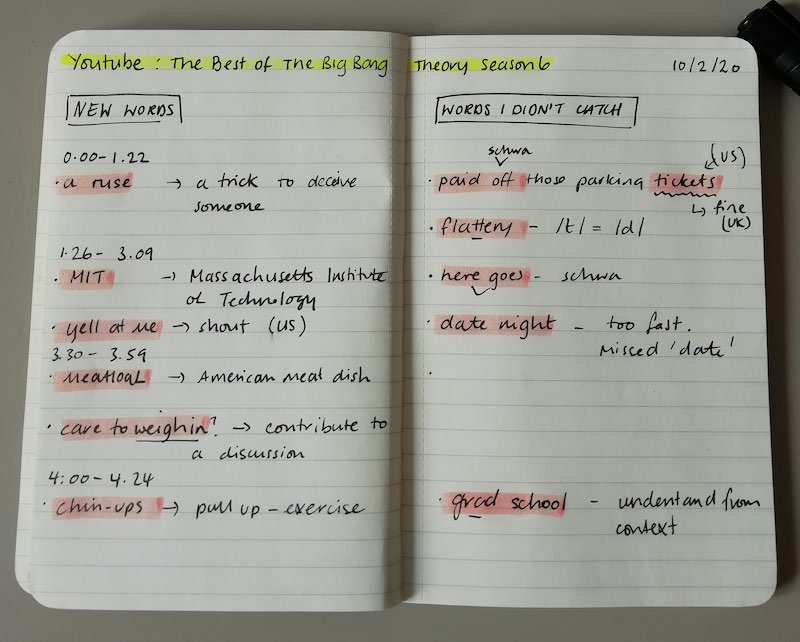 Youtube : The Best of The Big Bang Theory Season 6
10/2/20
NEW WORDS
0.00 - 1.22
· a ruse → a trick to deceive
someone
1.26 - 3.09
· MIT → Massachusetts Institute
of Technology
· yell at me → shout (US)
3.30 - 3.59
· meatloaf → American meat dish
· care to weigh in? → contribute to
a discussion
4:00 - 4.24
· chin-ups → pull up - exercise
WORDS I DIDN'T CATCH
schwa
(US)
· paid off those parking tickets
↳ fine
(UK)
· flattery - /t/ = /d/
· here goes - schwa
· date night - too fast.
missed 'date'
·
· grad school - understand from
context